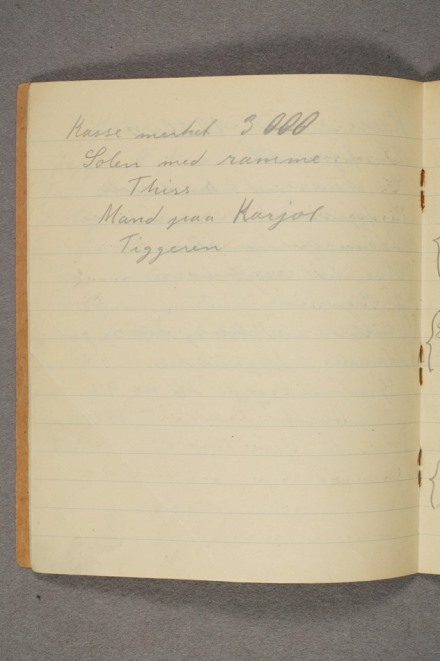 Kasse merket 3 000
Solen med ramme
Thiss
Mand paa Karjol
Tiggeren